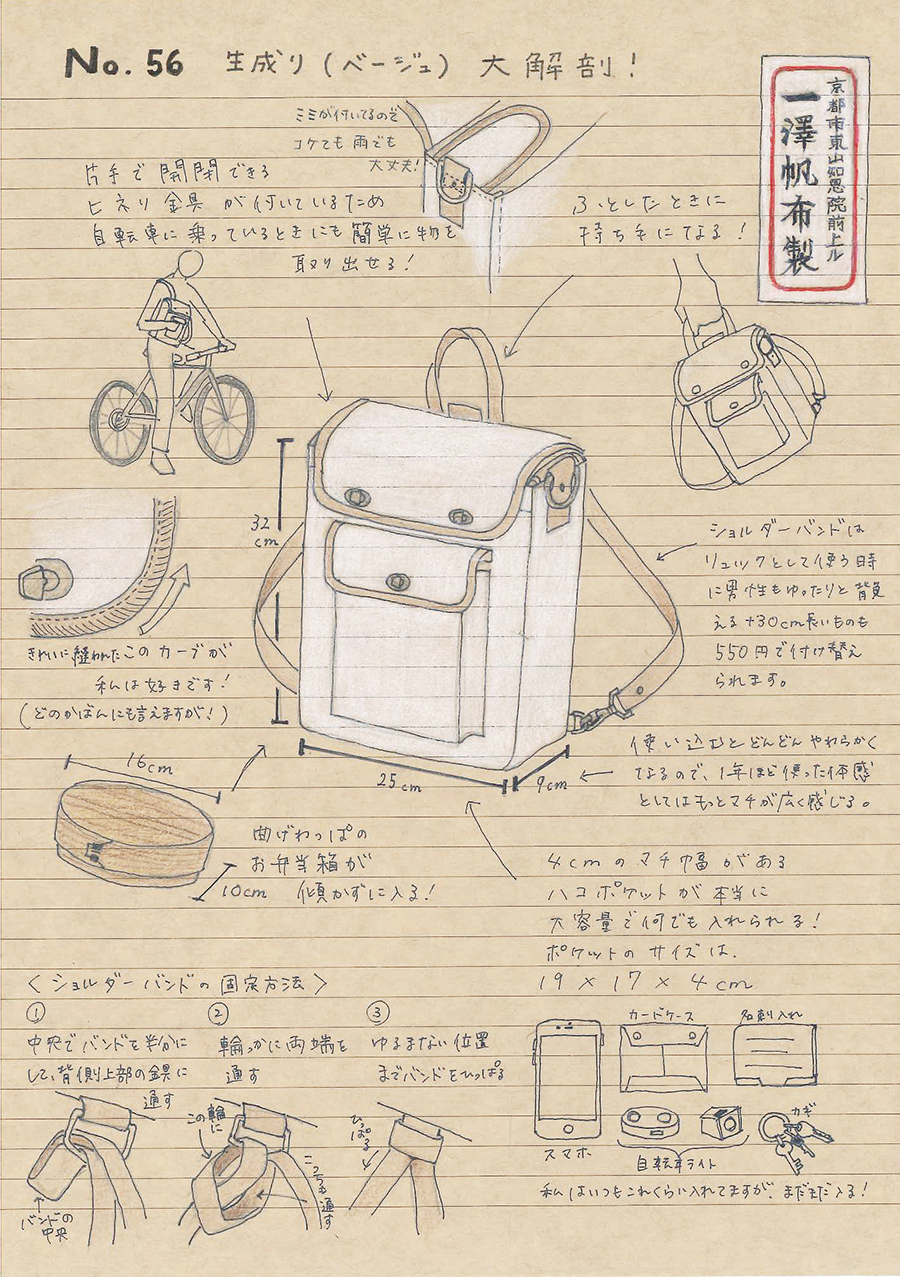 No. 56 生成り（ベージュ）大解剖！
京都市東山知恩院前上ル
一澤帆布製
ミミが付いてるので
コケても雨でも
大丈夫！
片手で開閉できる
ヒネリ金具が付いているため
自転車に乗っているときにも簡単に物を
取り出せる！
ふとしたときに
持ち手になる！
32
cm
ショルダーバンドは
リュックとして使う時
に男性もゆったりと背負
える+30cm長いものも
550円で付け替え
られます。
きれいに縫われたこのカーブが
私は好きです！
（どのかばんにも言えますが！）
25cm
9cm
使い込むとどんどんやわらかく
なるので、1年ほど使った体感
としてはもっとマチが広く感じる。
16cm
10cm
曲げわっぱの
お弁当箱が
傾かずに入る！
4cmのマチ幅がある
ハコポケットが本当に
大容量で何でも入れられる！
ポケットのサイズは、
19×17×4cm
〈ショルダーバンドの固定方法〉
①
中央でバンドを半分に
して、背側上部の金具に
通す
バンドの
中央
②
輪っかに両端を
通す
この輪に
こっちを通す
③
ゆるまない位置
までバンドをひっぱる
ひっぱる
スマホ
カードケース
名刺入れ
自転車ライト
カギ
私はいつもこれくらい入れてますが、まだまだ入る！